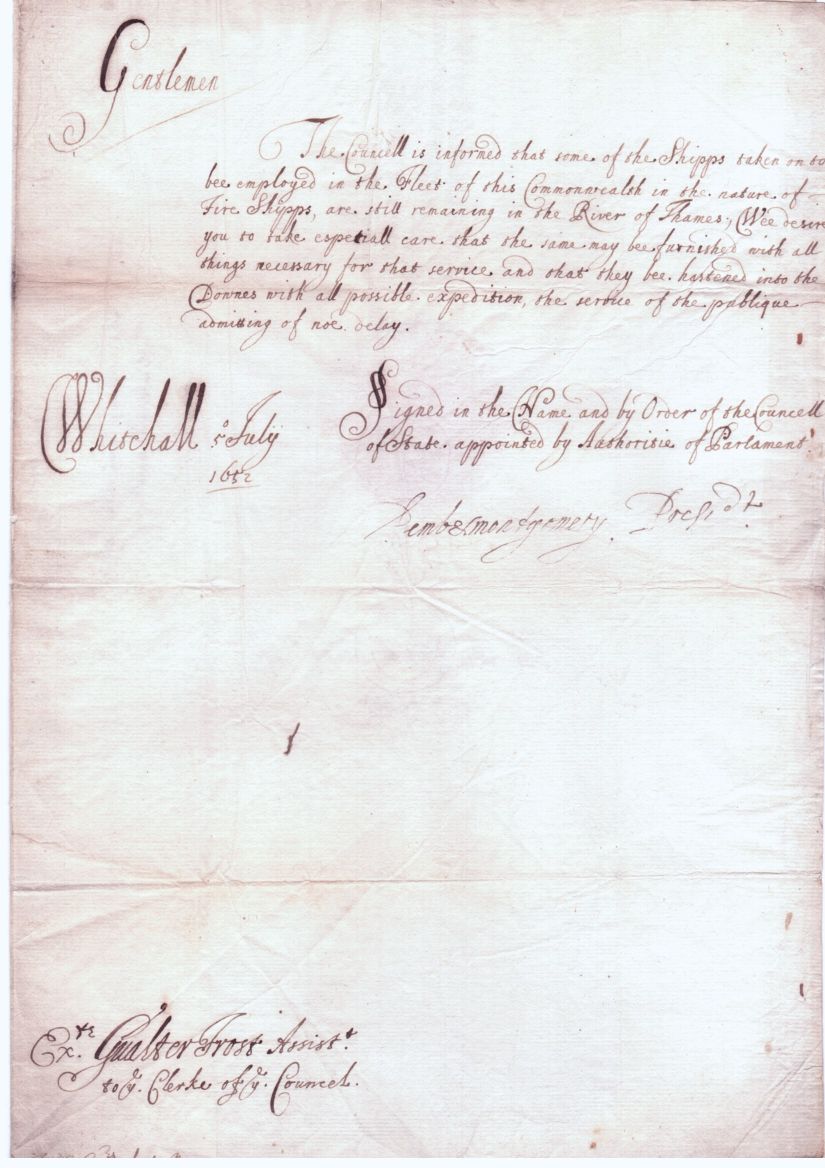 Gentlemen
The Councell is informed that some of the Shipps taken on to
bee employed in the Fleet of this Commonwealth in the nature of
Fire Shipps, are still remaining in the River of Thames; Wee desire
you to take espetiall care that the same may bee furnished with all
things necessary for that service and that they bee hastened into the
Downes with all possible expedition, the service of the publique
admitting of noe delay.
Whitehall 5º July
1652
Signed in the Name and by Order of the Councell
of State appointed by Authoritie of Parlament.
Pemb&montgomery Presidt
Ex.tr Gualter Frost Assist.t
to y.e Clerke of y.e Councel.